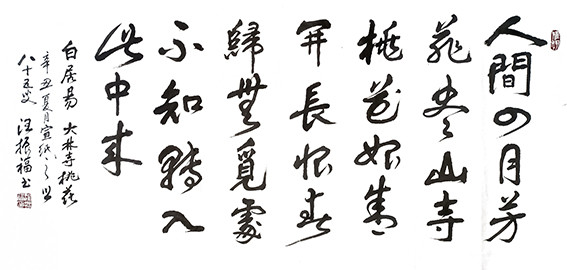 人間四月芳
菲尽山寺
桃花始盛
开長恨春
歸無覓處
不知轉入
此中来
白居易 大林寺桃花
辛丑夏月
八十五叟 汪振福书